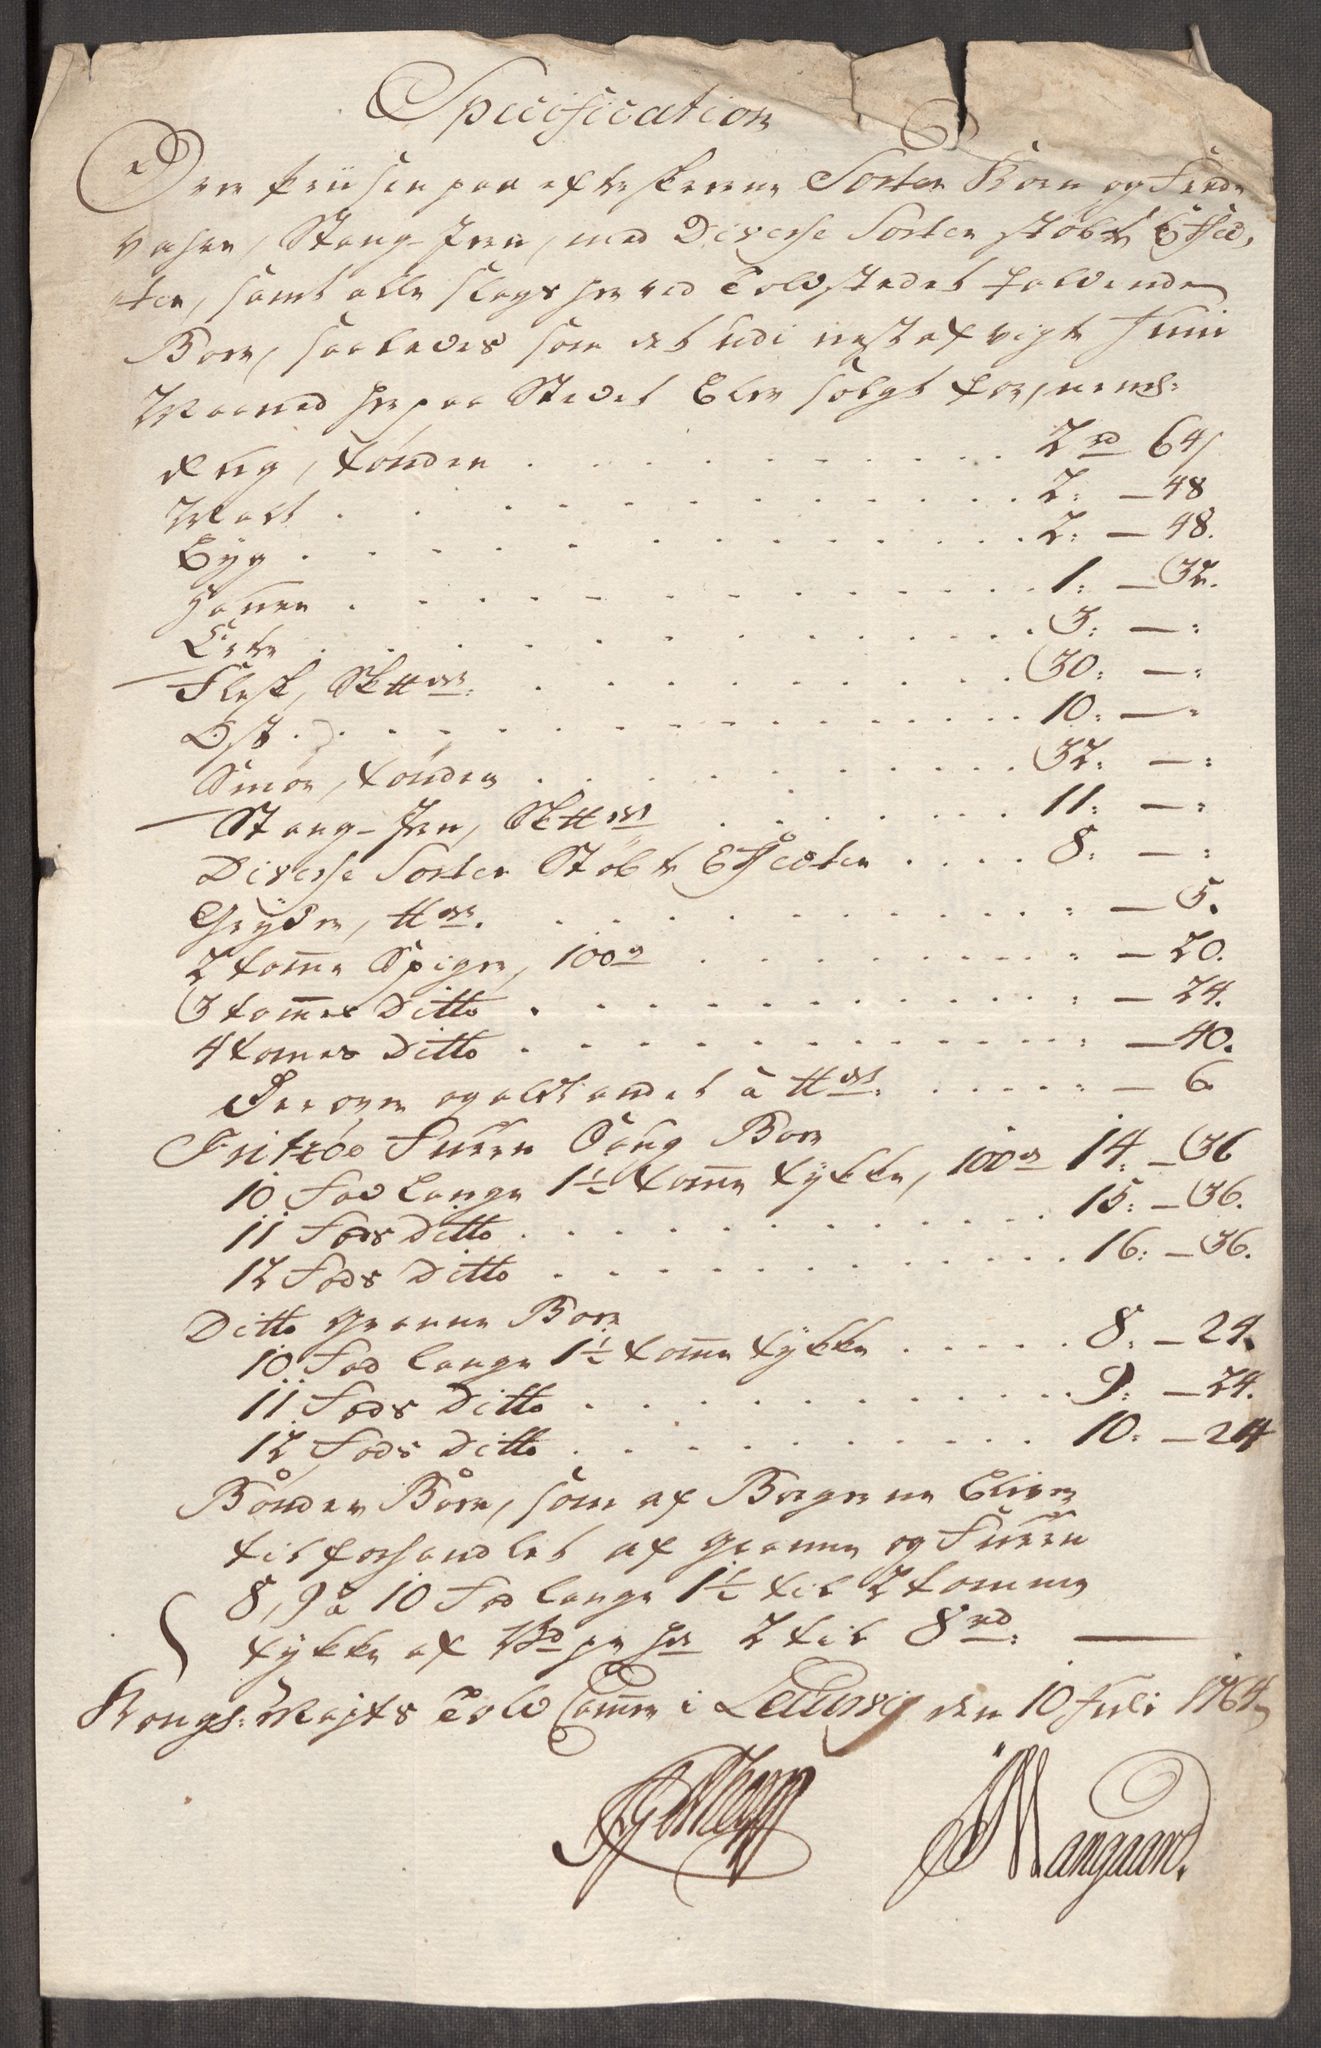 Specification
Over Priisen paa efterskrevne Sorter Korn og Fæde
vahre, Stang-Jern, med Diverse Sorter støbte Effec,
ter, samt alle slags her ved Toldstædet faldende
Bord, saaledes som det udi nestafvigte Junii
Maaned her paa Stædet Blev solgt for, neml:
Rug, tønden . . . 2 rd 64 s
Malt . . . 2: — 48
Byg . . . 2: — 48.
Hafre . . . 1: — 32.
Erter . . . 3: — :
Flesk, Sk℔det . . . 30: — :
Ost . . . 10: — :
Smør, tønden . . . 32: — :
Stang-Jern, Sk℔det . . . 11: — :
Diverse Sorter Støbte Effecter . . . 8: — :
Gryder, ℔det . . . : — 5.
2 tome Spiger, 100de . . . : — 20.
3 tomes Ditto . . . : — 24.
4 tomes Ditto . . . : — 40.
og alt andet a ℔det . . . : — 6
Fritzøe Furru Saug Bord
10 Fod Lange 1½ tome tykke, 100de 14: — 36
11 Fods Ditto . . . 15: — 36.
12 Fods Ditto . . . 16: — 36.
Ditto Granne Bord
10 Fod lange 1½ tome tykke . . . 8: — 24.
11 Fods Ditto . . . 9: — 24.
12 Fods Ditto . . . 10: — 24
Bønder Bord, som af Borgerne Bliver
tilforhandlet af Granne og Furru
8, 9 a 10 Fod lange 1½ til 2 tomme
tykke af pr 2 til 8 rd: —
Kongl: Mayts Told Camer i Laurvig den 10 Juli 1764
Maangaard.